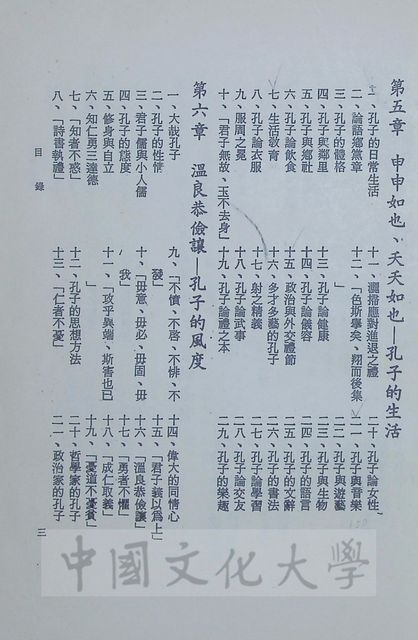 第五章　申申如也、夭夭如也—孔子的生活
一、孔子的日常生活
二、論語鄉黨章
三、孔子的體格
四、孔子與鄰里
五、孔子與鄉社
六、孔子論飲食
七、生活教育
八、孔子論衣服
九、服周之冕
十、「君子無故、玉不去身」
十一、灑掃應對進退之禮
十二、「色斯舉矣、翔而後集」
十三、孔子論健康
十四、孔子論儀容
十五、政治與外交禮節
十六、多才多藝的孔子
十七、射之精義
十八、孔子論武事
十九、孔子論禮之本
二十、孔子論女性
二一、孔子與音樂
二二、孔子與遊藝
二三、孔子與生物
二四、孔子的語言
二五、孔子的文辭
二六、孔子的書法
二七、孔子論學習
二八、孔子論交友
二九、孔子的樂趣
第六章　溫良恭儉讓—孔子的風度
一、大哉孔子
二、孔子的性情
三、君子儒與小人儒
四、孔子的態度
五、修身與自立
六、知仁勇三達德
七、「知者不惑」
八、「詩書執禮」
九、「不憤、不啓、不悱、不發」
十、「毋意、毋必、毋固、毋我」
十一、「攻乎異端、斯害也已」
十二、孔子的思想方法
十三、「仁者不憂」
十四、偉大的同情心
十五、「君子義以為上」
十六、「溫良恭儉讓」
十七、「勇者不懼」
十八、「成仁取義」
十九、「憂道不憂貧」
二十、哲學家的孔子
二一、政治家的孔子
目　錄
三
中國文化大學